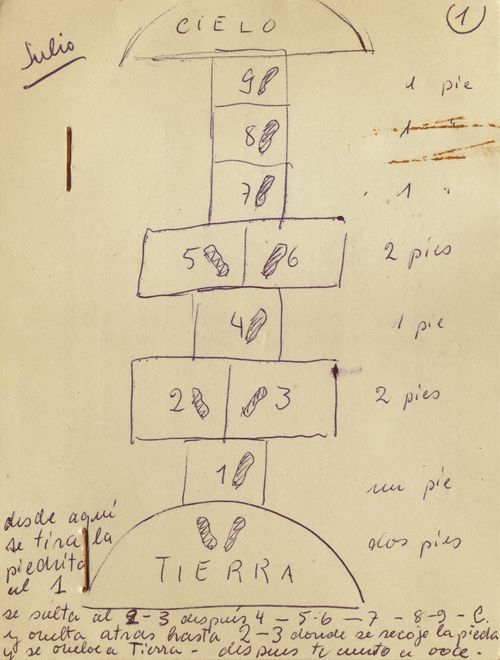 1
Julio
CIELO
9 1 pie
8 1 "
7 1 "
5 6 2 pies
4 1 pie
2 3 2 pies
1 un pie
dos pies
TIERRA
desde aquí
se tira la
piedrita
al 1
se salta al 2-3 después 4 - 5-6 - 7 - 8-9 - C.
y vuelta atras hasta 2-3 donde se recoje la piedra
y se vuelve a Tierra - después